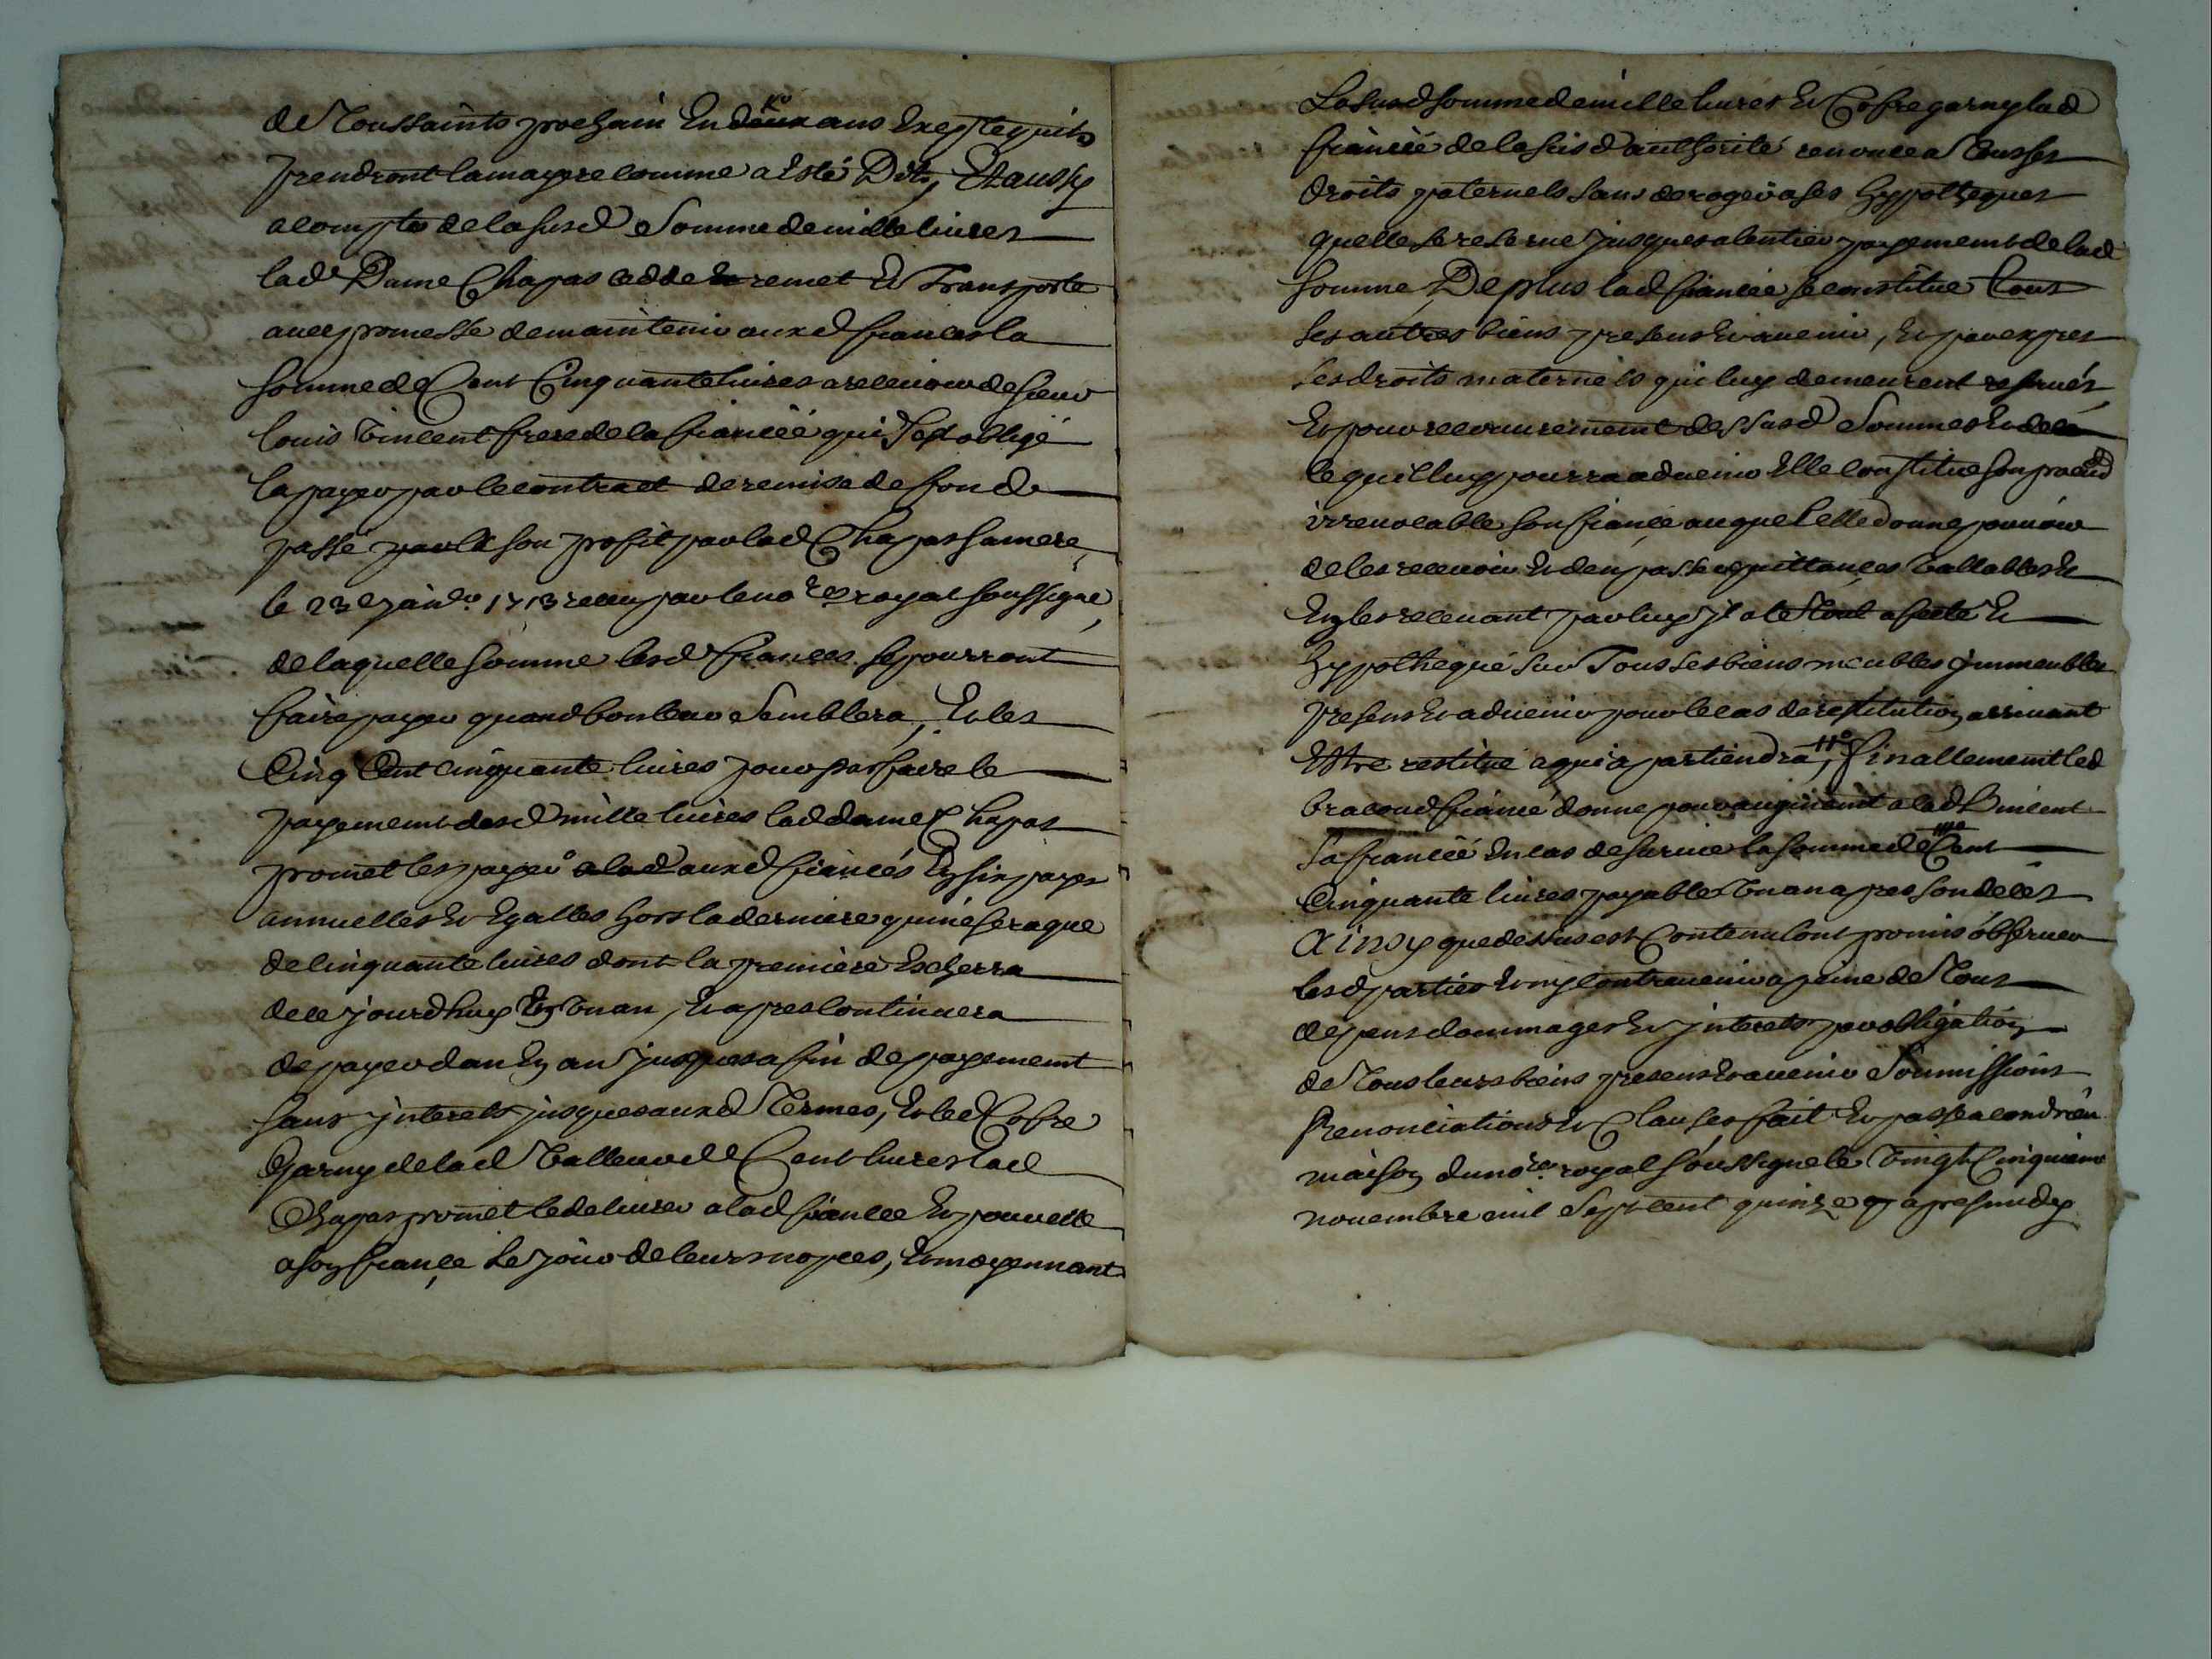 de Toussaints prochain En deux ans Exepté quils
prendront la mayere comme a Esté Dit, Et aussy
a compte de la susd Somme de mille livres
lad Dame Chapas cedde remet Et Transporte
avec promesse de maintenir auxd fiances la
somme de Cent Cinquante livres a recevoir de sieur
louis Vincent frere de la fianciée qui s'est obligé
la payer par le contract de remise de fonds
passé par a son profit par lad Chapas sa mere,
le 23e janvr 1713 receu par le no.re royal soussigne,
de laquelle somme lesd fiances se pourront
faire payer quand bon leur Semblera, Et les
Cinq Cent cinquante livres pour parfaire le
payement desd mille livres lad dame Chapas
promet les payer auxd fiancés En six payes
annuelles Et Egalles hors la derniere qui ne sera que
de cinquante livres dont la premiere Escherra
de ce jourdhuy En Un an, Et apres continuera
de payer dan En an jusques a fin de payement
sans interets jusques auxd Termes, Et led Cofre
Garny de lad Valleur de Cent livres lad
Chapas promet le delivrer a lad fiancee Et pour elle
a son fiance le jour de leurs nopces, Et moyennant
La susd somme de mille livres Et Cofre garny lad
fianciée de la susd authorité renonce a Tous ses
droits paternels sans deroger a ses hyppotheques
quelle se reserve jusques a lentier payement de lad
somme De plus lad fiancée se constitue Tous
ses autres biens presens Et avenir, Et par expres
ses droits maternels qui luy demeurent reservés
Et pour recouvrement desSusd Sommes Et de
ce quil luy pourra advenir Elle constitue son procur
irrevocable son fiance auquel elle donne pouvoir
de les recevoir Et den passer quittances Vallables Et
En les recevant par luy jl a le Tout assuré Et
hyppothequé sur Tous ses biens meubles jmmeubles
presens Et advenir pour le cas de restitution arrivant
Estre restitué a qui apartiendra, finallement led
bracoud fiancé donne pour augment a lad Vincent
sa fianciée En cas de survie la somme de Cent
Cinquante livres payable Un an apres son deces
Ainsy que dessus est Contenu lont promis observer
lesd parties Et ny contrevenir a peine de Tous
depens dommages Et jnterets par obligation
de Tous leurs biens presens Et avenir Soumissions
Renonciations Et Clauses fait Et passé a condrieu
maison du no.re royal soussigne le Vingt Cinquieme
novembre mil Sept cent quinze apres midy